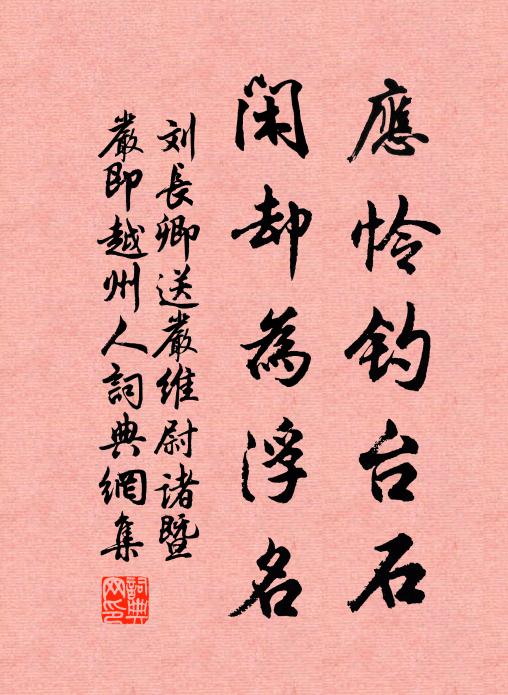 應怜釣台石
閑却為浮名
刘長卿送嚴維尉诸暨
嚴即越州人詞典網集
詞典网印